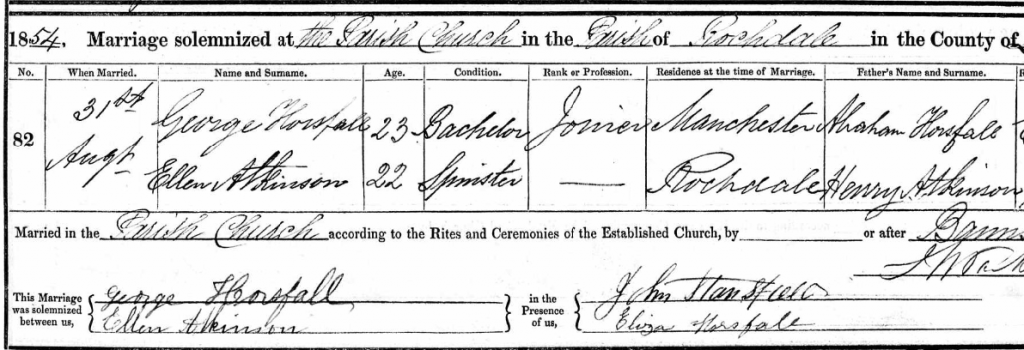 1854. Marriage solemnized at the Parish Church in the Parish of Rochdale in the County of
No. When Married. Name and Surname. Age. Condition. Rank or Profession. Residence at the time of Marriage. Father's Name and Surname.
82 31st Augt George Horsfall 23 Bachelor Joiner Manchester Abraham Horsfall
Ellen Atkinson 22 Spinster — Rochdale Henry Atkinson
Married in the Parish Church according to the Rites and Ceremonies of the Established Church, by or after Banns
This Marriage was solemnized between us, George Horsfall in the Presence of us, John
Ellen Atkinson Eliza Horsfall